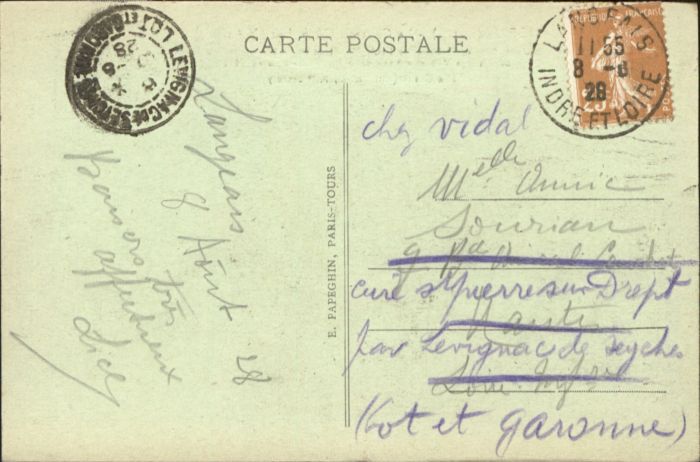 CARTE POSTALE
LEVIGNAC DE SEYCHES
LOT ET GARONNE
8 -8
28
LANGEAIS
11 55
8 -8
28
INDRE ET LOIRE
25
Langeais
8 Août 28
Baisers très
affectueux
E. PAPEGHIN, PARIS-TOURS
chez vidal
Melle Annie
Sourian
9 Bd
curé st pierre sur Dropt
Nantes
par Levignac de Seyches
Loire Infre
(Lot et Garonne)